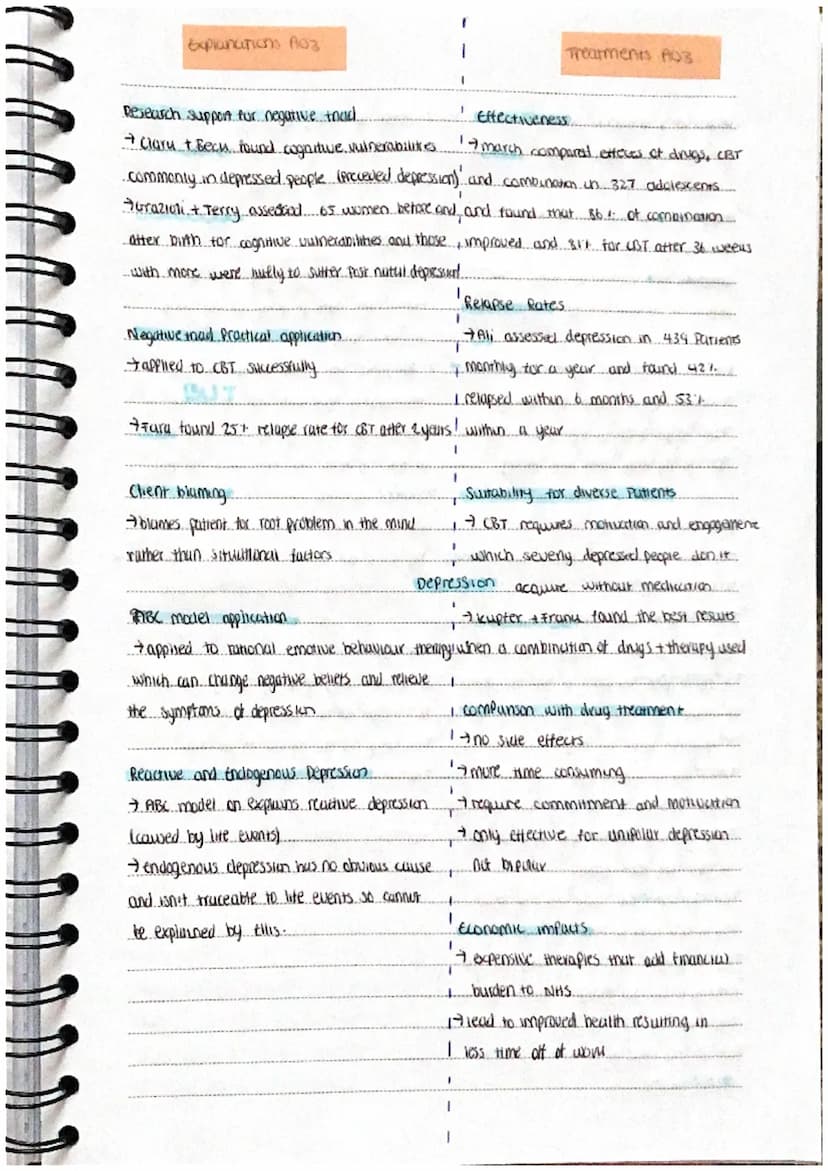 Explanations AO3
Research support for negative triad
→ Clark + Beck found cognitive vulnerabilities
commonly in depressed people (preceded depression)
→ Grazioli + Terry assessed 65 women before and
after birth for cognitive vulnerabilities and those
with more were likely to suffer post natal depression
Negative triad Practical application
→ applied to CBT successfully
BUT
→ found 25% relapse rate for CBT after 2 years
Client blaming
→ blames patient for root problem in the mind
rather than situational factors
Depression
ABC model application
→ applied to rational emotive behaviour therapy
which can change negative beliefs and relieve
the symptoms of depression
Reactive and Endogenous Depression
→ ABC model on explains reactive depression
(caused by life events)
→ endogenous depression has no obvious cause
and isn't traceable to life events so cannot
be explained by Ellis.
Treatments AO3
Effectiveness
→ march compared effects of drugs, CBT
and combination in 327 adolescents
and found that 86% of combination
improved and 81% for CBT after 36 weeks
Relapse Rates
→ Ali assessed depression in 439 Patients
monthly for a year and found 42%
relapsed within 6 months and 53%
within a year
Suitability for diverse Patients
→ CBT requires motivation and engagement
which severly depressed people don't
acquire without medication
→ Kupfer + Frank found the best results
when a combination of drugs + therapy used
comparison with drug treatment
→ no side effects
→ more time consuming
→ require commitment and motivation
→ only effective for unipolar depression
not bipolar
Economic impacts
→ expensive therapies that add financial
burden to NHS
→ lead to improved health resulting in
less time off of work